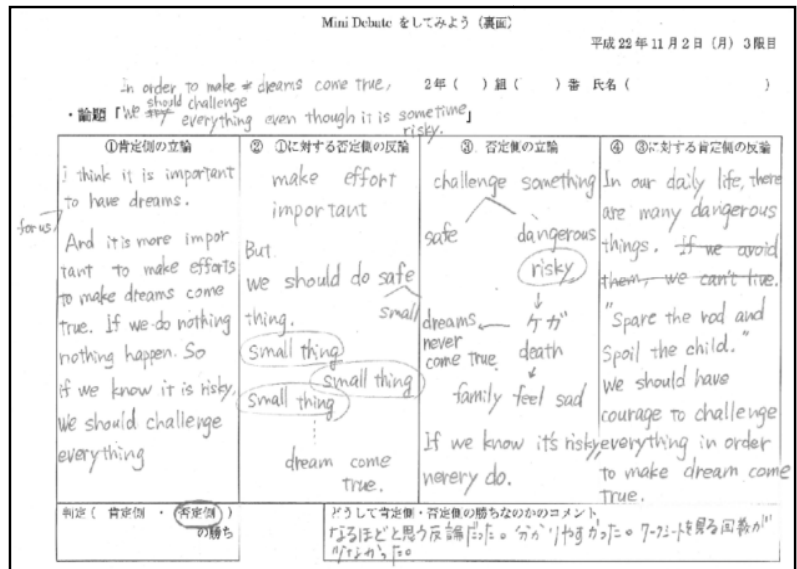 Mini Debate をしてみよう (裏面)
平成 22 年 11 月 2 日 (月) 3 限目
In order to make dreams come true,
2年 ( ) 組 ( ) 番 氏名 ( )
should challenge
・論題「We everything even though it is sometime
risky.」
①肯定側の立論
i think it is important
to have dreams.
for us
And it is more impor
tant to make efforts
to make dreams come
true. If we do nothing
nothing happen. So
if we know it is risky,
we should challenge
everything
② ①に対する否定側の反論
make effort
important
But
we should do safe
small
thing.
small thing
small thing
small thing
dream come
true.
③ 否定側の立論
challenge something
safe
dangerous
risky
dreams ← ケガ
never
come true
death
family feel sad
If we know it's risky,
nerery do.
④ ③に対する肯定側の反論
In our daily life, there
are many dangerous
things. If we avoid
them, we can't live.
"Spare the rod and
Spoil the child."
we should have
courage to challenge
everything in order
to make dream come
true.
判定 ( 肯定側 ・ 否定側 )
の勝ち
どうして肯定側・否定側の勝ちなのかのコメント
なるほどと思う反論だった。分かりやすかった。ワークシートを見る回数が
少なかった。